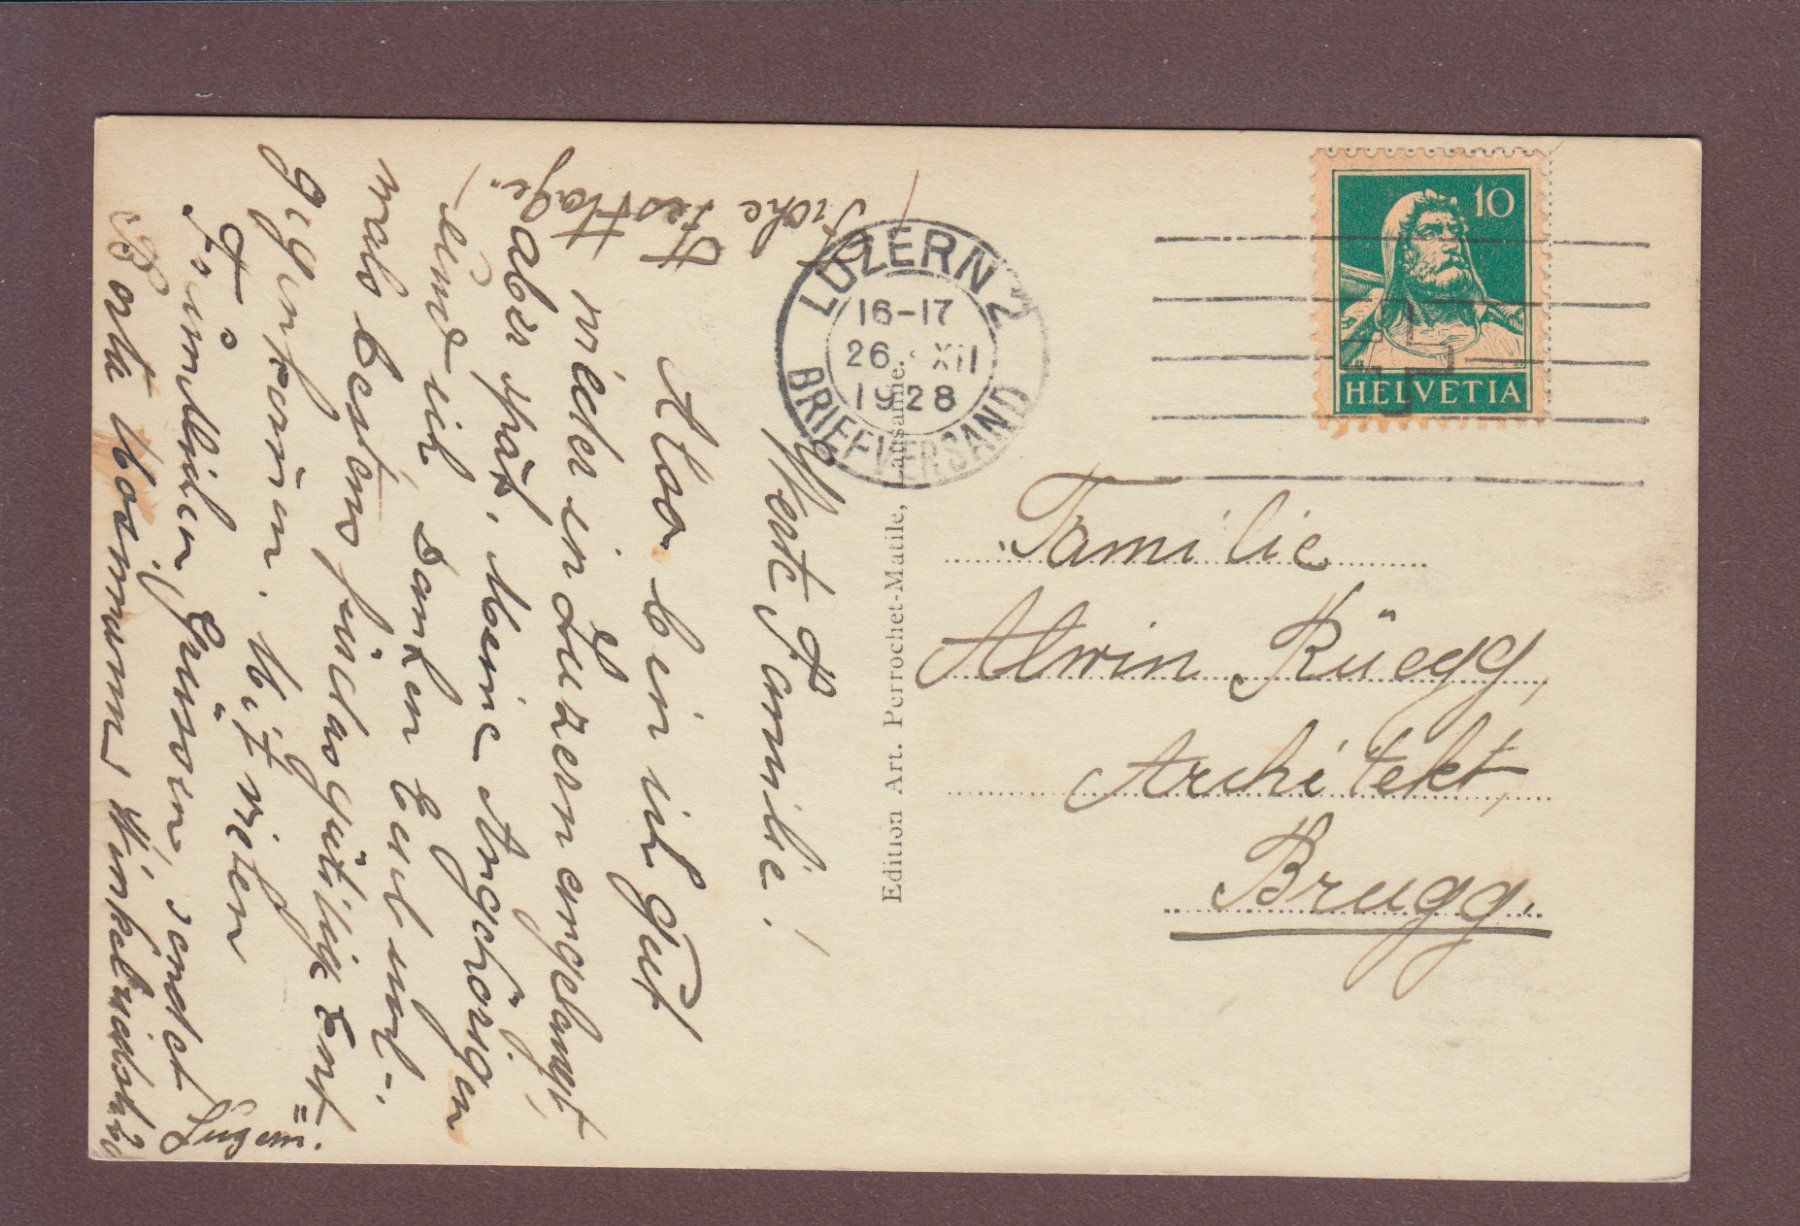 LUZERN 2
16-17
26. XII
1928
BRIEFVERSAND
10
HELVETIA
Familie
Alwin Rüegg,
Architekt,
Brugg.
Edition Art. Perrochet-Matile, Lausanne.
Werte Familie!
Also bin ich gut
wieder in Luzern angelangt
aber spät. Meine Angehörigen
und ich danken Euch noch-
mals bestens für das gütige Ent=
gegenkommen. Mit vielen
freundlichen Grüssen, sendet
Festtage.